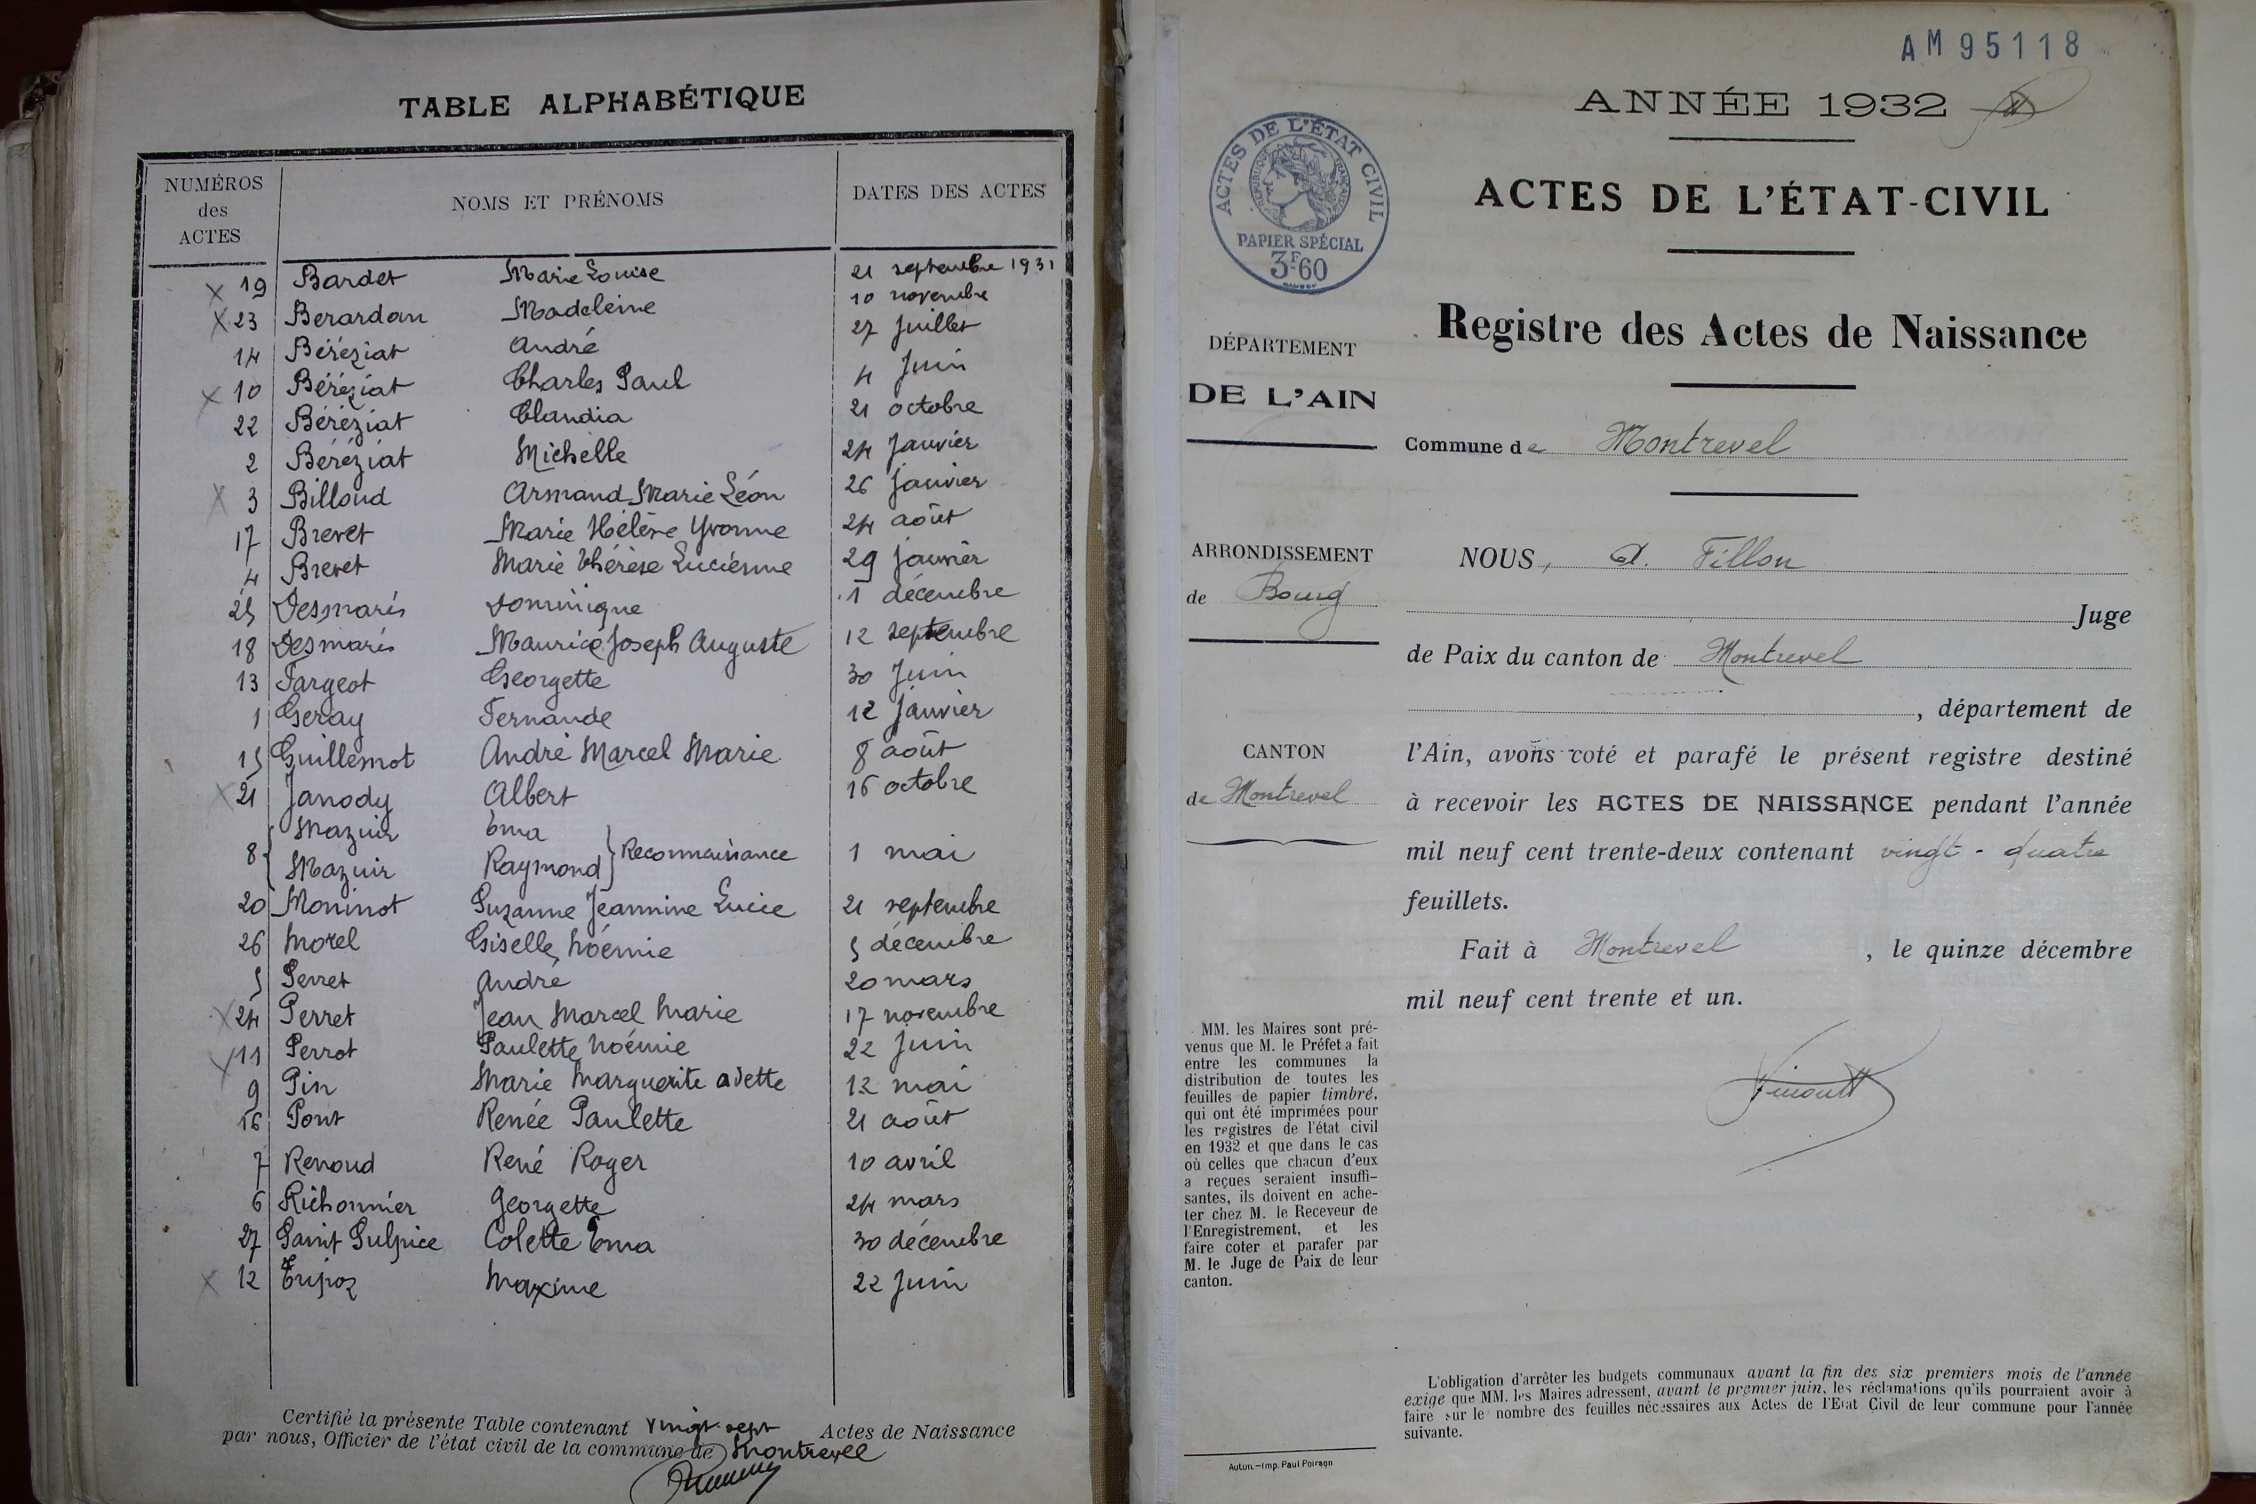 TABLE ALPHABÉTIQUE
NUMÉROS des ACTES
NOMS ET PRÉNOMS
DATES DES ACTES
19 Bardet Marie Louise 21 septembre 1931
23 Berardan Madeleine 10 novembre
14 Béréziat André 27 Juillet
10 Béréziat Charles Paul 4 Juin
22 Béréziat Claudia 21 octobre
2 Béréziat Michelle 24 Janvier
3 Billoud Armand Marie Léon 26 Janvier
17 Brevet Marie Hélène Yvonne 24 août
4 Brevet Marie Thérèse Lucienne 29 janvier
25 Desmaris Dominique 1 décembre
18 Desmaris Maurice Joseph Auguste 12 septembre
13 Fargeot Georgette 30 Juin
1 Geray Fernande 12 Janvier
15 Guillemot André Marcel Marie 8 août
21 Janody Albert 16 octobre
Mazuir Ema
8 Reconnaissance 1 mai
Mazuir Raymond
20 Moninot Suzanne Jeannine Lucie 21 septembre
26 Morel Giselle Noémie 5 décembre
5 Perret André 20 mars
24 Perret Jean Marcel Marie 17 novembre
11 Perrot Paulette Noémie 22 Juin
9 Pin Marie Marguerite odette 12 mai
16 Pont Renée Paulette 21 août
7 Renoud René Roger 10 avril
6 Richonnier Georgette 24 mars
27 Saint Sulpice Colette Ema 30 décembre
12 Maxime 22 Juin
Certifié la présente Table contenant vingt-sept Actes de Naissance
par nous, Officier de l'état civil de la commune de Montrevel
AM95118
ANNÉE 1932
ACTES DE L'ÉTAT CIVIL
RÉPUBLIQUE FRANÇAISE
PAPIER SPÉCIAL
3F60
ACTES DE L'ÉTAT-CIVIL
Registre des Actes de Naissance
DÉPARTEMENT
DE L'AIN
Commune de Montrevel
ARRONDISSEMENT
de Bourg
CANTON
de Montrevel
NOUS, A. Fillon
Juge
de Paix du canton de Montrevel
, département de
l'Ain, avons coté et parafé le présent registre destiné
à recevoir les ACTES DE NAISSANCE pendant l'année
mil neuf cent trente-deux contenant vingt-quatre
feuillets.
Fait à Montrevel, le quinze décembre
mil neuf cent trente et un.
MM. les Maires sont pré-
venus que M. le Préfet a fait
entre les communes la
distribution de toutes les
feuilles de papier timbré,
qui ont été imprimées pour
les registres de l'état civil
en 1932 et que dans le cas
où celles que chacun d'eux
a reçues seraient insuffi-
santes, ils doivent en ache-
ter chez M. le Receveur de
l'Enregistrement, et les
faire coter et parafer par
M. le Juge de Paix de leur
canton.
Autun.-Imp. Paul Poirson
L'obligation d'arrêter les budgets communaux avant la fin des six premiers mois de l'année
exige que MM. les Maires adressent, avant le premier juin, les réclamations qu'ils pourraient avoir à
faire sur le nombre des feuilles nécessaires aux Actes de l'Etat Civil de leur commune pour l'année
suivante.